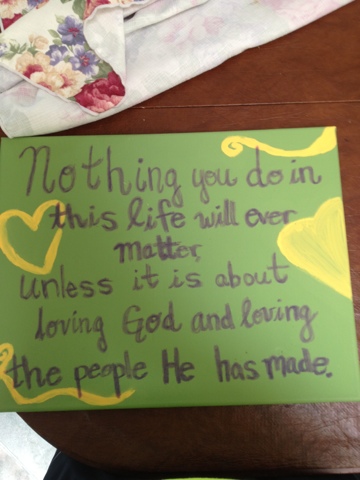 Nothing you do in
this life will ever
matter,
unless it is about
loving God and loving
the people He has made.